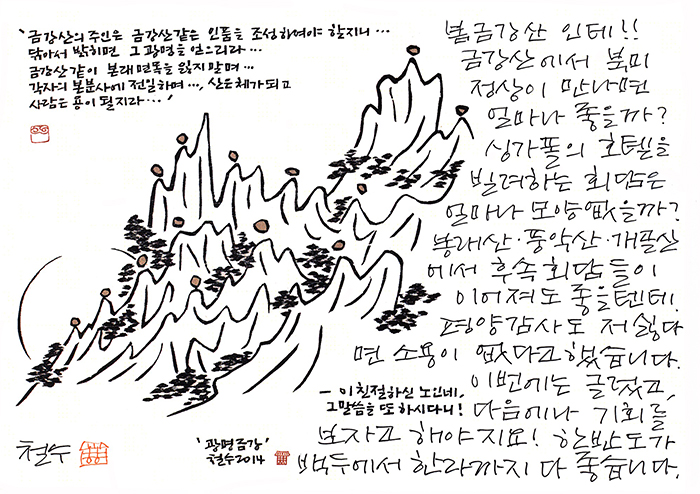 '금강산의 주인은 금강산같은 인품을 조성하여야 할지니…
닦아서 밝히면 그 광명을 얻으리라…
금강산같이 본래면목을 잃지말며…
각자의 본분사에 전일하며…, 산은 체가 되고
사람은 용이 될지라…'
봄금강산 인데!!
금강산에서 북미
정상이 만나면
얼마나 좋을까?
싱가폴의 호텔을
빌려하는 회담은
얼마나 모양없을까?
봉래산·풍악산·개골산
에서 후속회담들이
이어져도 좋을텐데.
평양감사도 저싫다
면 소용이 없다고했습니다.
이번에는 글렀고,
다음에나 기회를
보자고 해야지요! 한반도가
백두에서 한라까지 다 좋습니다.
— 이 친절하신 노인네,
그말씀을 또 하시다니!
'광명금강'
철수2014
철수